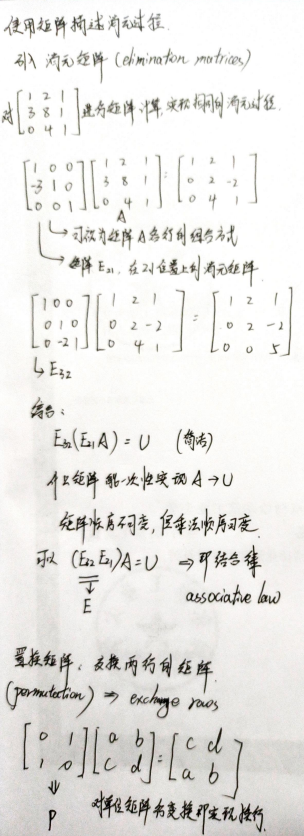 使用矩阵描述消元过程.
引入 消元矩阵 (elimination matrices)
对 [1 2 1; 3 8 1; 0 4 1] 进行矩阵计算, 实现相同的消元过程.
[1 0 0; -3 1 0; 0 0 1] [1 2 1; 3 8 1; 0 4 1] = [1 2 1; 0 2 -2; 0 4 1]
A
↳ 可视为矩阵A各行的组合方式
↳ 矩阵 E₂₁, 在21位置上的消元矩阵
[1 0 0; 0 1 0; 0 -2 1] [1 2 1; 0 2 -2; 0 4 1] = [1 2 1; 0 2 -2; 0 0 5]
↳ E₃₂
结合:
E₃₂(E₂₁A) = U (简洁)
什么矩阵能一次性实现 A → U
矩阵顺序不可变, 但乘法顺序可变
可以 (E₃₂E₂₁)A = U ⇒ 即结合律
↓ E associative law
置换矩阵, 交换两行的矩阵
(permutation) ⇒ exchange rows
[0 1; 1 0] [a b; c d] = [c d; a b]
↓
P 对单位矩阵有变换即实现换行.